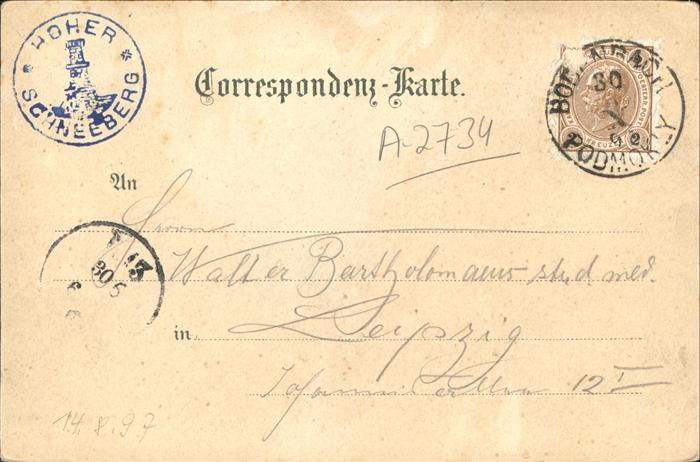 * HOHER *
SCHNEEBERG
Correspondenz-Karte.
BODENBACH
30
PODMOKLY
2 KREUZER 2
A-2734
An
Herrn
Walter Bartholomäus stud med.
30 5
in
Leipzig
12 I
14.8.97